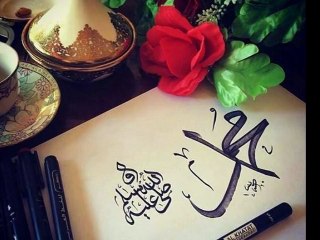 محمد
صلى الله عليه وآله